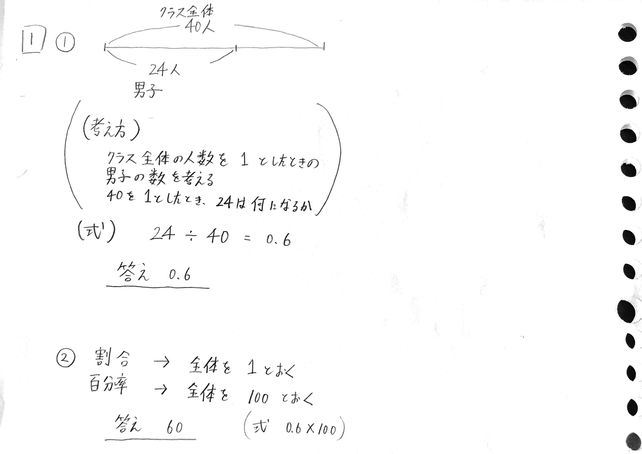 1 ① クラス全体
40人
24人
男子
(考え方)
クラス全体の人数を 1 としたときの
男子の数を考える
40を1としたとき、24は何になるか
(式) 24 ÷ 40 = 0.6
答え 0.6
② 割合 → 全体を 1 とおく
百分率 → 全体を 100 とおく
答え 60 (式 0.6×100)